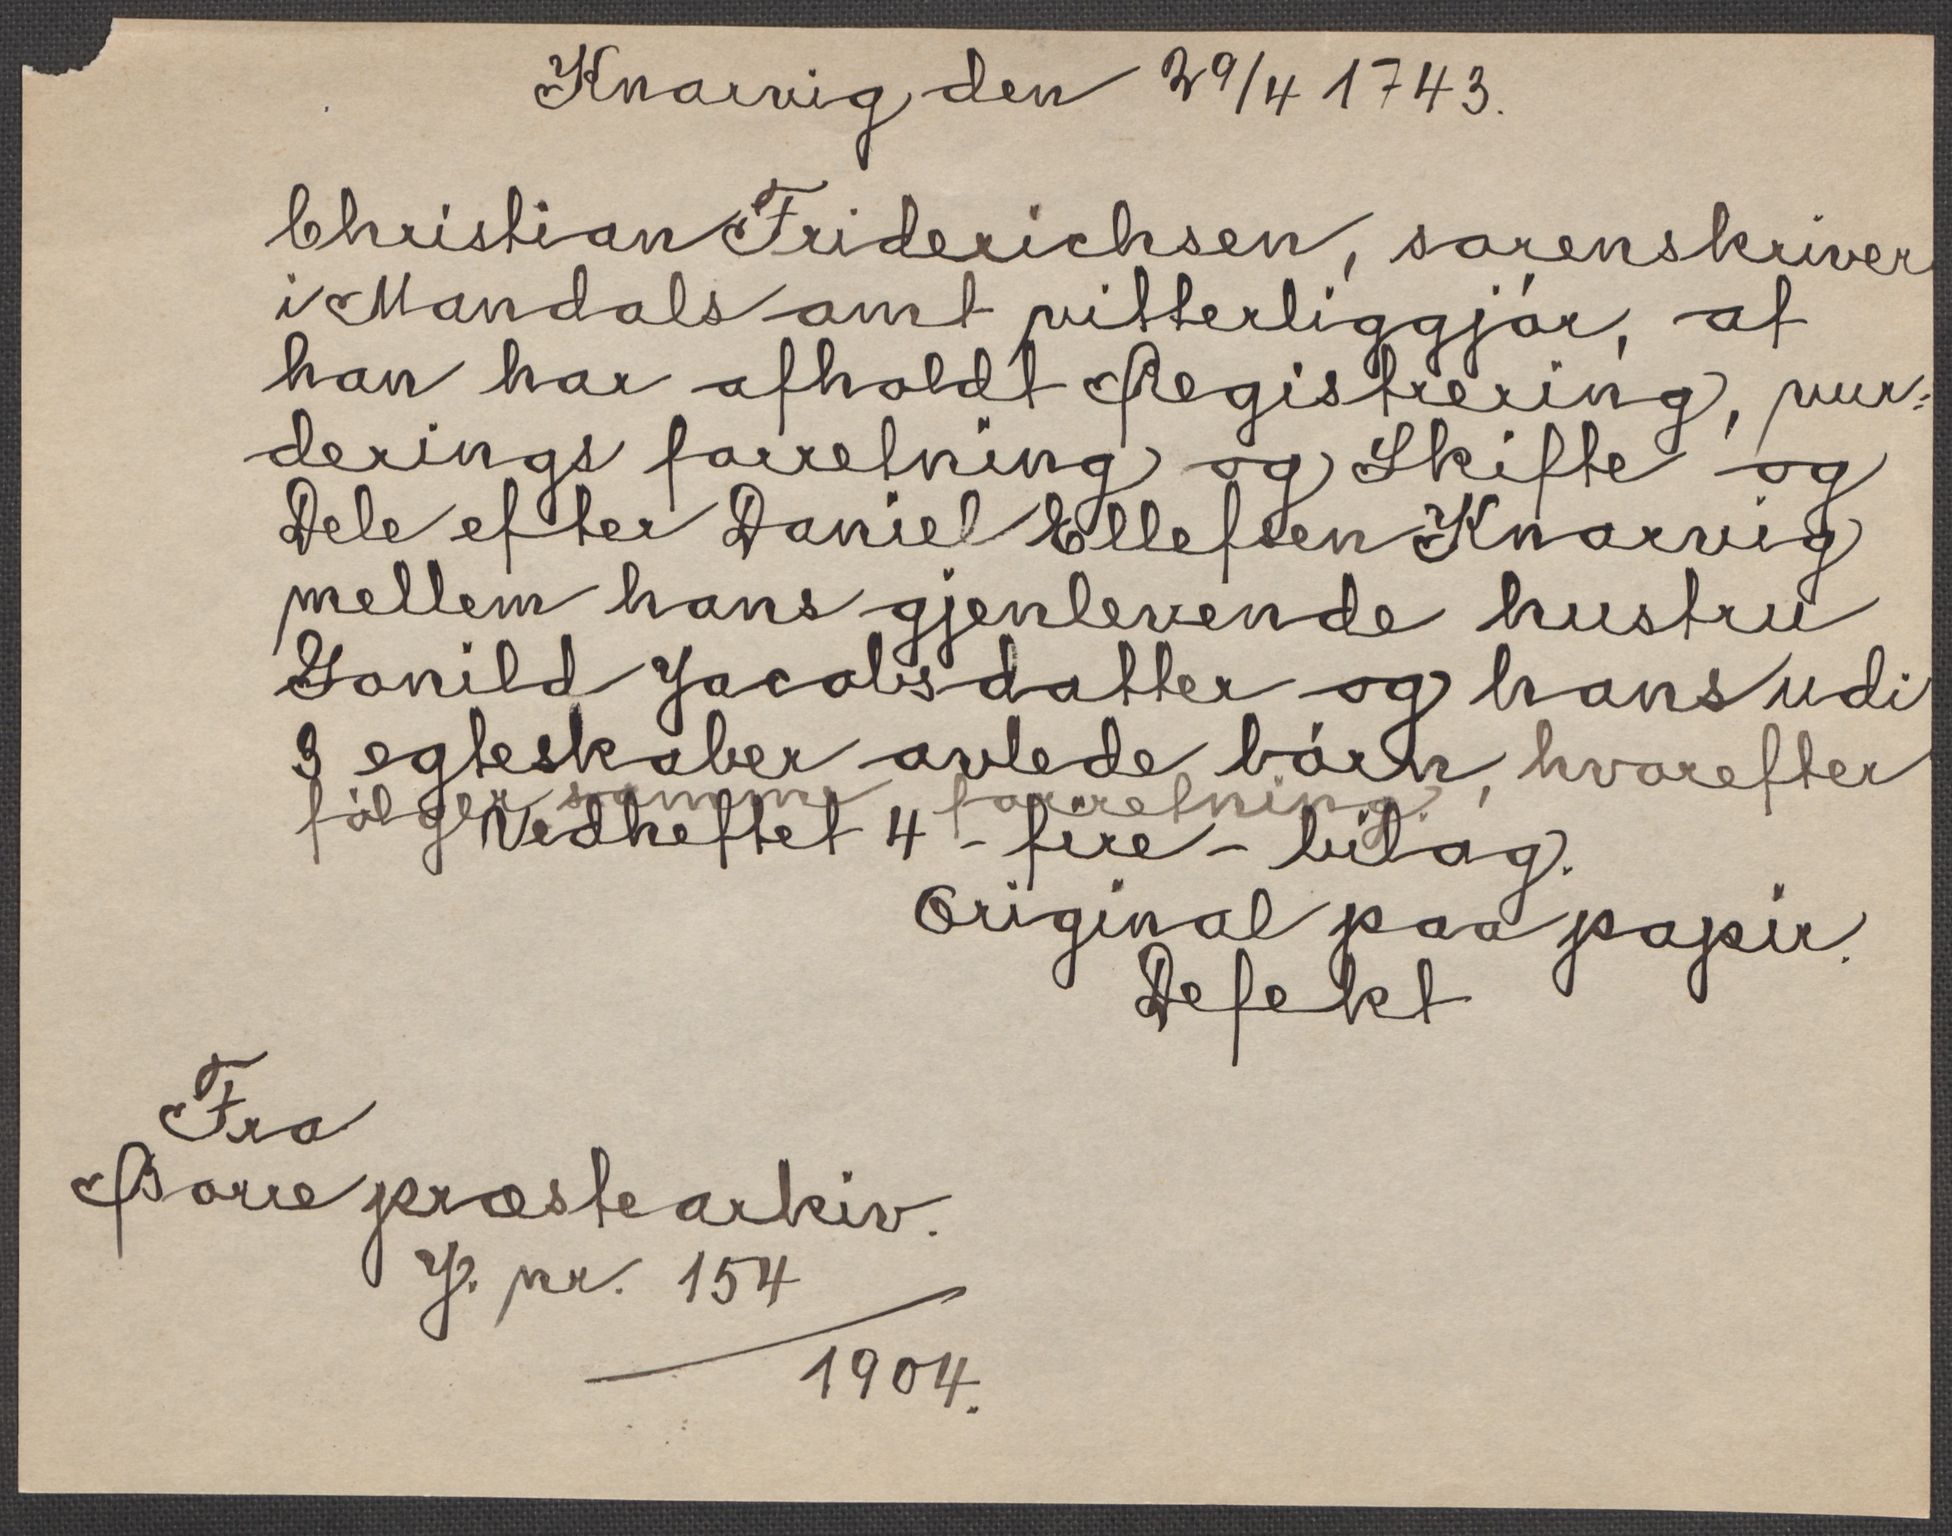 Knarvig den 29/4 1743.
Christian Friderichsen, sorenskriver
i Mandals amt vitterliggjór, at
han har afholdt Registrering, vur=
derings forretning og Skifte og
Dele efter Daniel Ellefsen Knarvig
mellem hans gjenlevende hustru
Gonild Jacobsdatter og hans udi
3 egteskaber avlede bórn, hvorefter
fólger samme forretning.
Vedheftet 4 - fire - bilag.
Original paa papir.
Defekt
Fra
Borre præstearkiv.
J. nr. 154
1904.